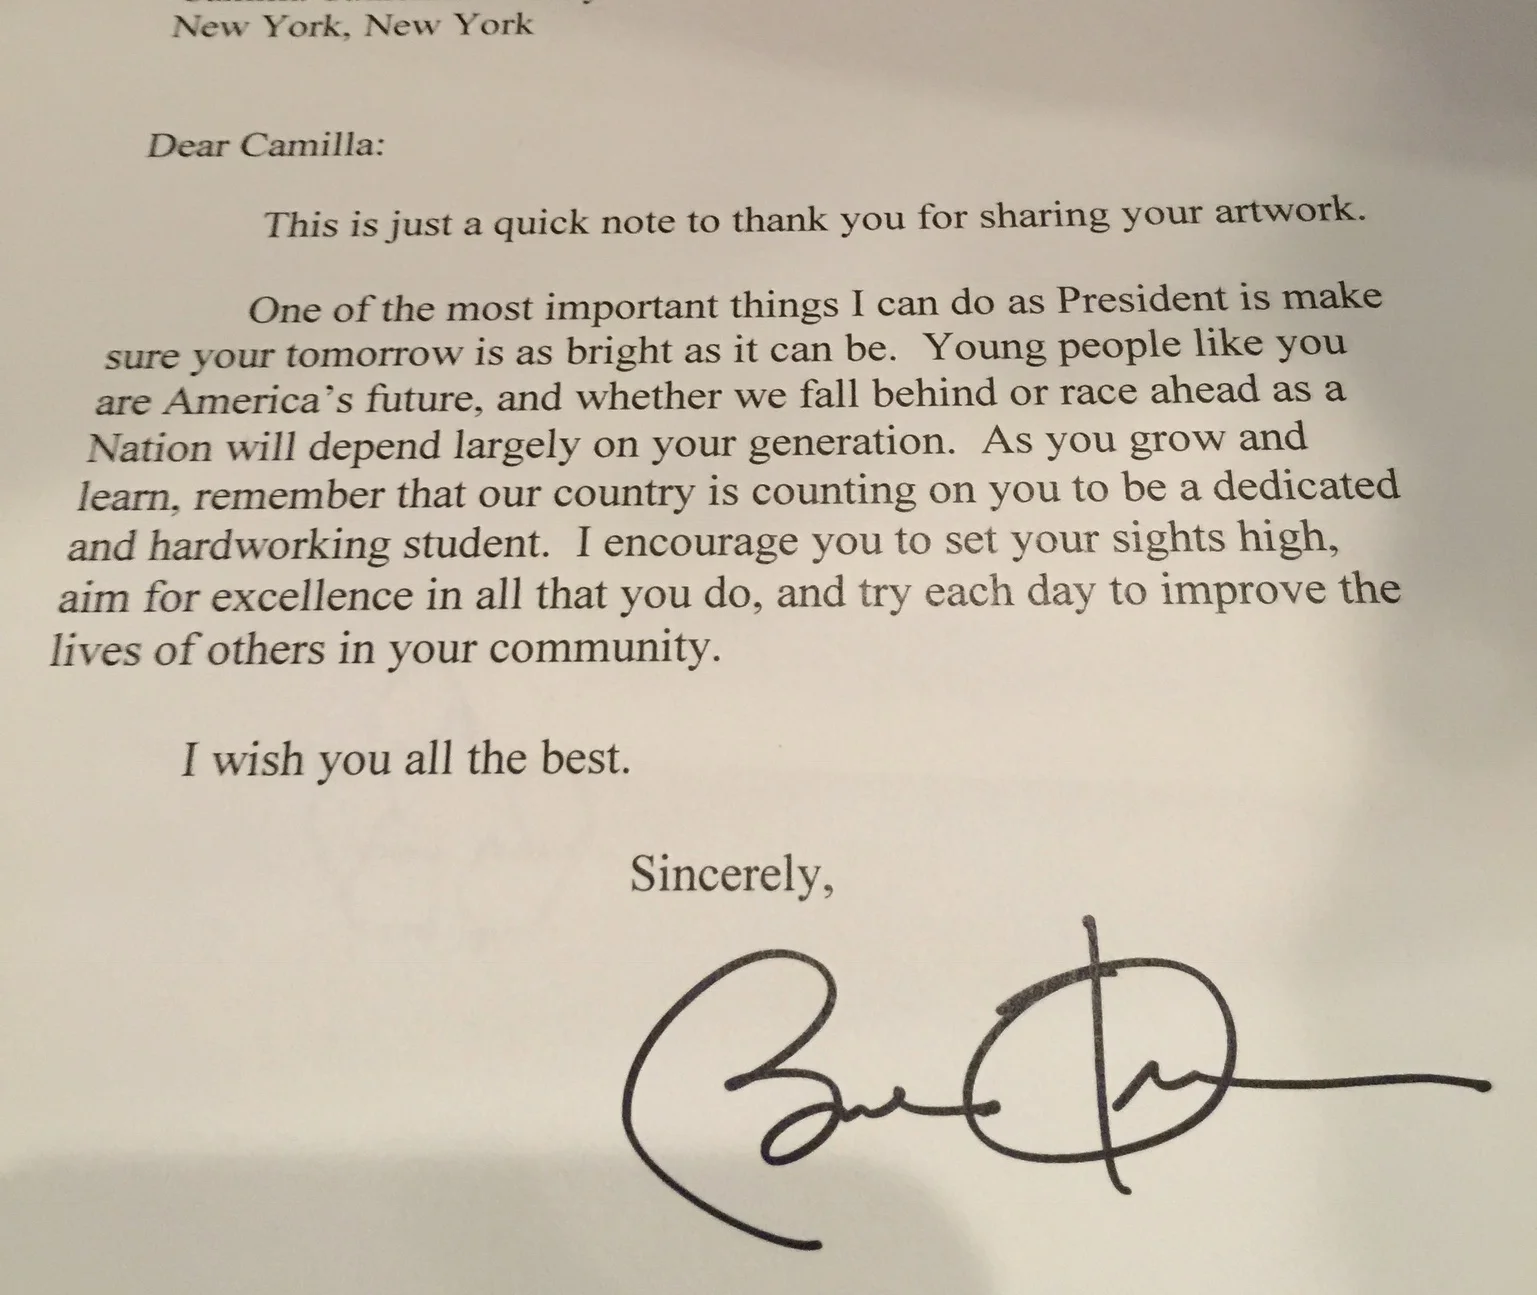 New York, New York
Dear Camilla:
This is just a quick note to thank you for sharing your artwork.
One of the most important things I can do as President is make
sure your tomorrow is as bright as it can be. Young people like you
are America's future, and whether we fall behind or race ahead as a
Nation will depend largely on your generation. As you grow and
learn, remember that our country is counting on you to be a dedicated
and hardworking student. I encourage you to set your sights high,
aim for excellence in all that you do, and try each day to improve the
lives of others in your community.
I wish you all the best.
Sincerely,